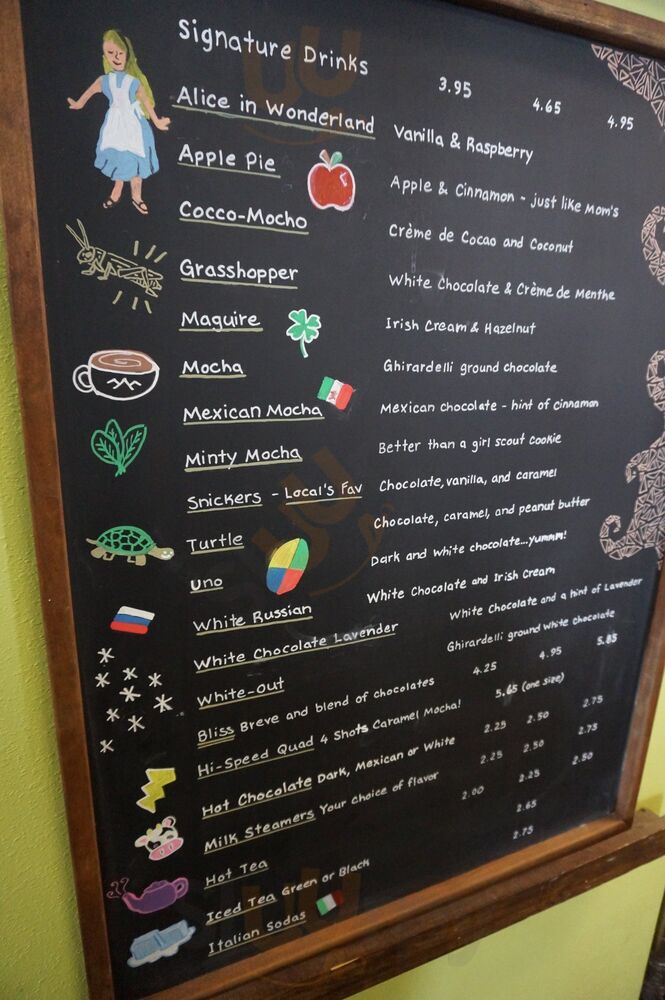 Signature Drinks 3.95 4.65 4.95
Alice in Wonderland Vanilla & Raspberry
Apple Pie Apple & Cinnamon - just like Mom's
Cocco-Mocho Crème de Cacao and Coconut
Grasshopper White Chocolate & Crème de Menthe
Maguire Irish Cream & Hazelnut
Mocha Ghirardelli ground chocolate
Mexican Mocha Mexican chocolate - hint of cinnamon
Minty Mocha Better than a girl scout cookie
Snickers - Local's Fav Chocolate, caramel, and peanut butter
Turtle Chocolate, vanilla, and caramel
Uno Dark and white chocolate...yummm!
White Russian White Chocolate and Irish Cream
White Chocolate Lavender White Chocolate and a hint of Lavender
White-Out Ghirardelli ground white chocolate
Bliss Breve and blend of chocolates 4.25 4.95 5.85
Hi-Speed Quad 4 Shots Caramel Mocha! 5.65 (one size)
Hot Chocolate Dark, Mexican or White 2.25 2.50 2.75
Milk Steamers Your choice of flavor 2.25 2.50 2.75
Hot Tea 2.00 2.25 2.50
Iced Tea Green or Black 2.65
Italian Sodas 2.75